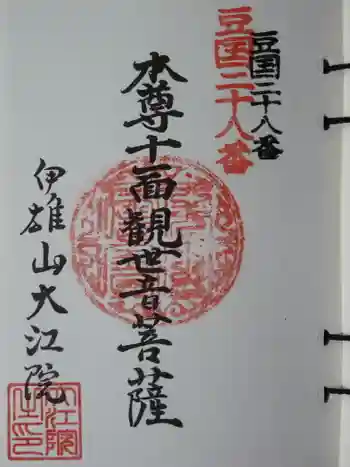 豆国二十八番
豆国二十八番
本尊十一面觀世音菩薩
伊雄山大江院
大江院
之印